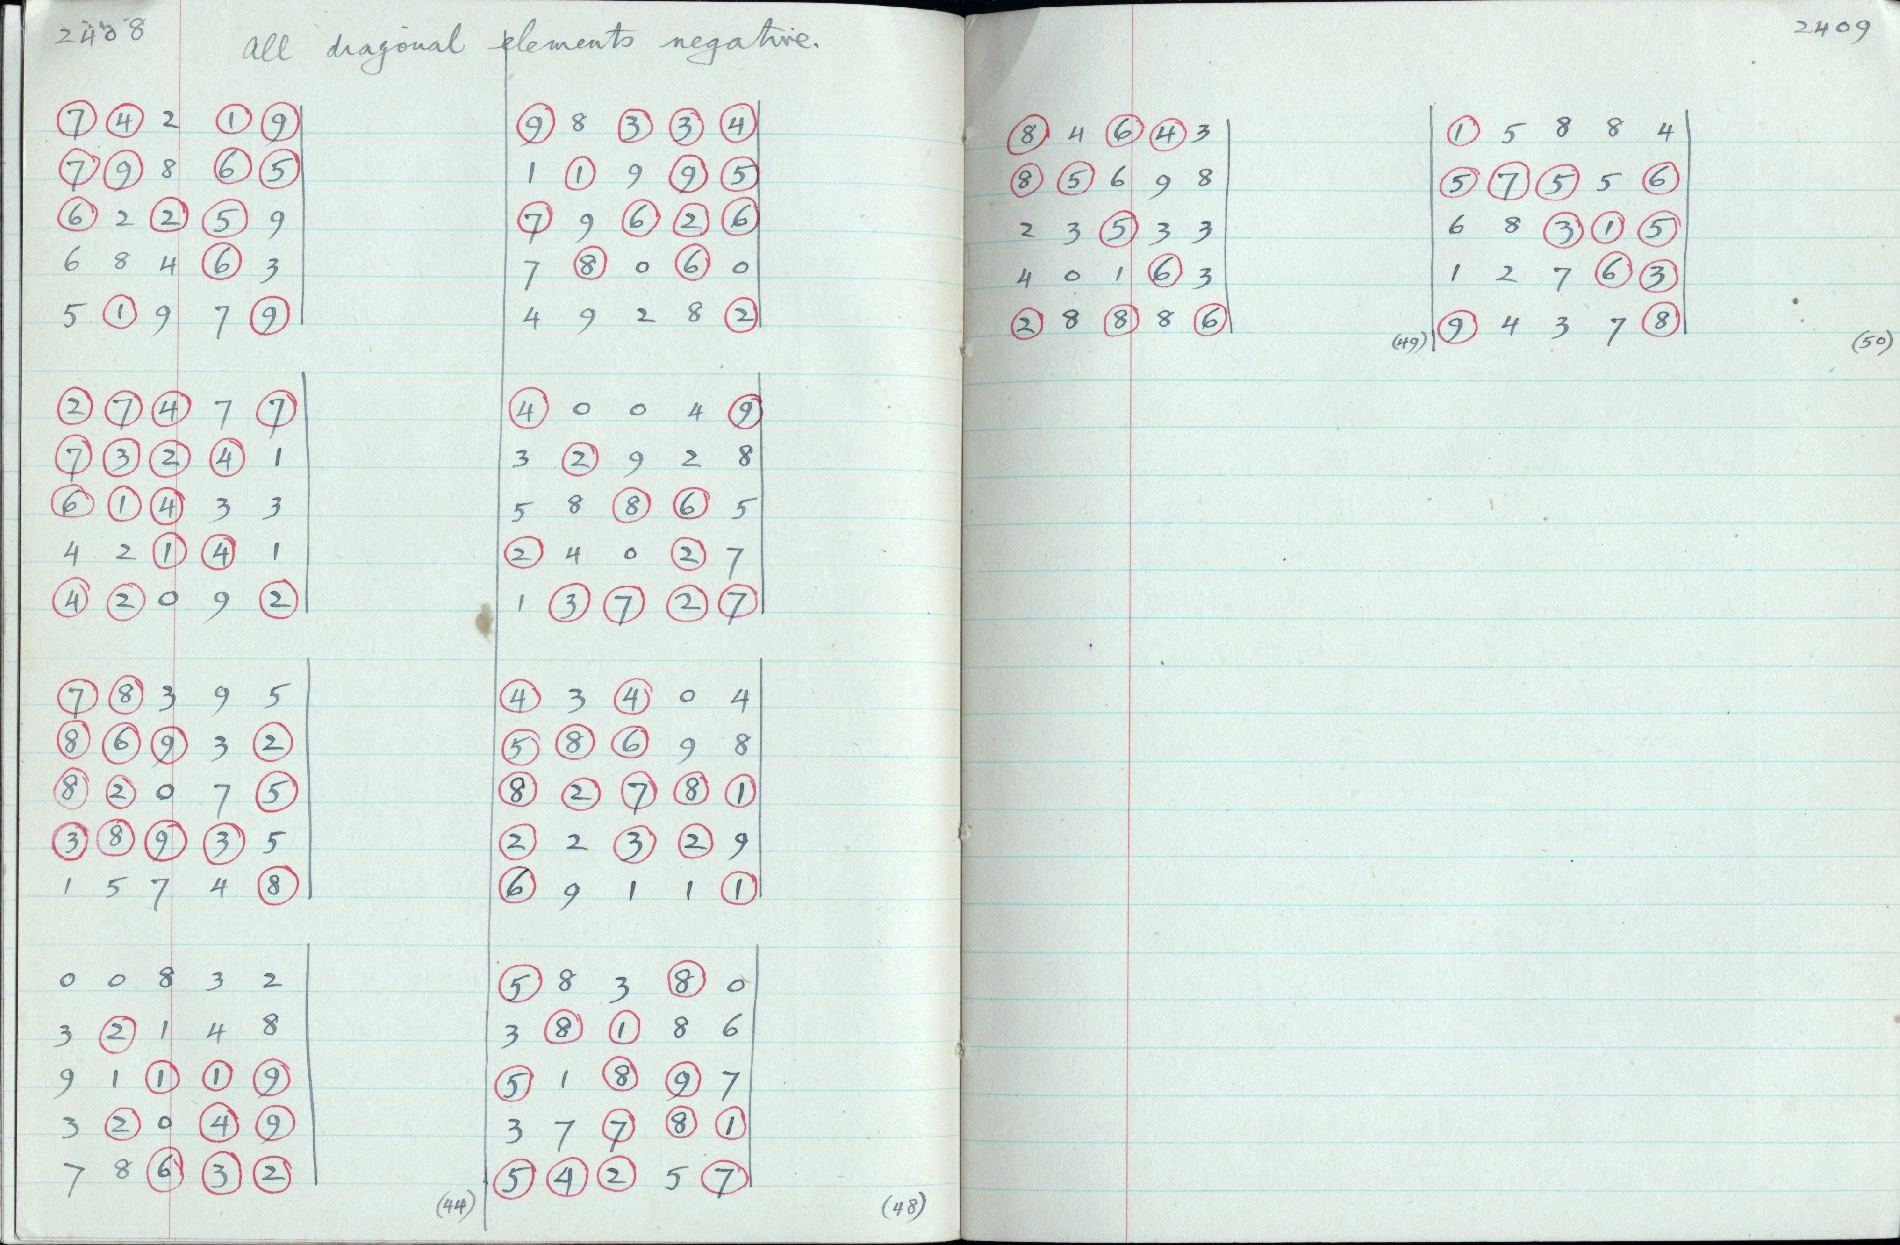 2408
All diagonal elements negative.
7 4 2 1 9
7 9 8 6 5
6 2 2 5 9
6 8 4 6 3
5 1 9 7 9
2 7 4 7 7
7 3 2 4 1
6 1 4 3 3
4 2 1 4 1
4 2 0 9 2
7 8 3 9 5
8 6 9 3 2
8 2 0 7 5
3 8 9 3 5
1 5 7 4 8
0 0 8 3 2
3 2 1 4 8
9 1 1 1 9
3 2 0 4 9
7 8 6 3 2
(44)
9 8 3 3 4
1 1 9 9 5
7 9 6 2 6
7 8 0 6 0
4 9 2 8 2
4 0 0 4 9
3 2 9 2 8
5 8 8 6 5
2 4 0 2 7
1 3 7 2 7
4 3 4 0 4
5 8 6 9 8
8 2 7 8 1
2 2 3 2 9
6 9 1 1 1
5 8 3 8 0
3 8 1 8 6
5 1 8 9 7
3 7 7 8 1
5 4 2 5 7
(48)
2409
8 4 6 4 3
8 5 6 9 8
2 3 5 3 3
4 0 1 6 3
2 8 8 8 6
(49)
1 5 8 8 4
5 7 5 5 6
6 8 3 1 5
1 2 7 6 3
9 4 3 7 8
(50)